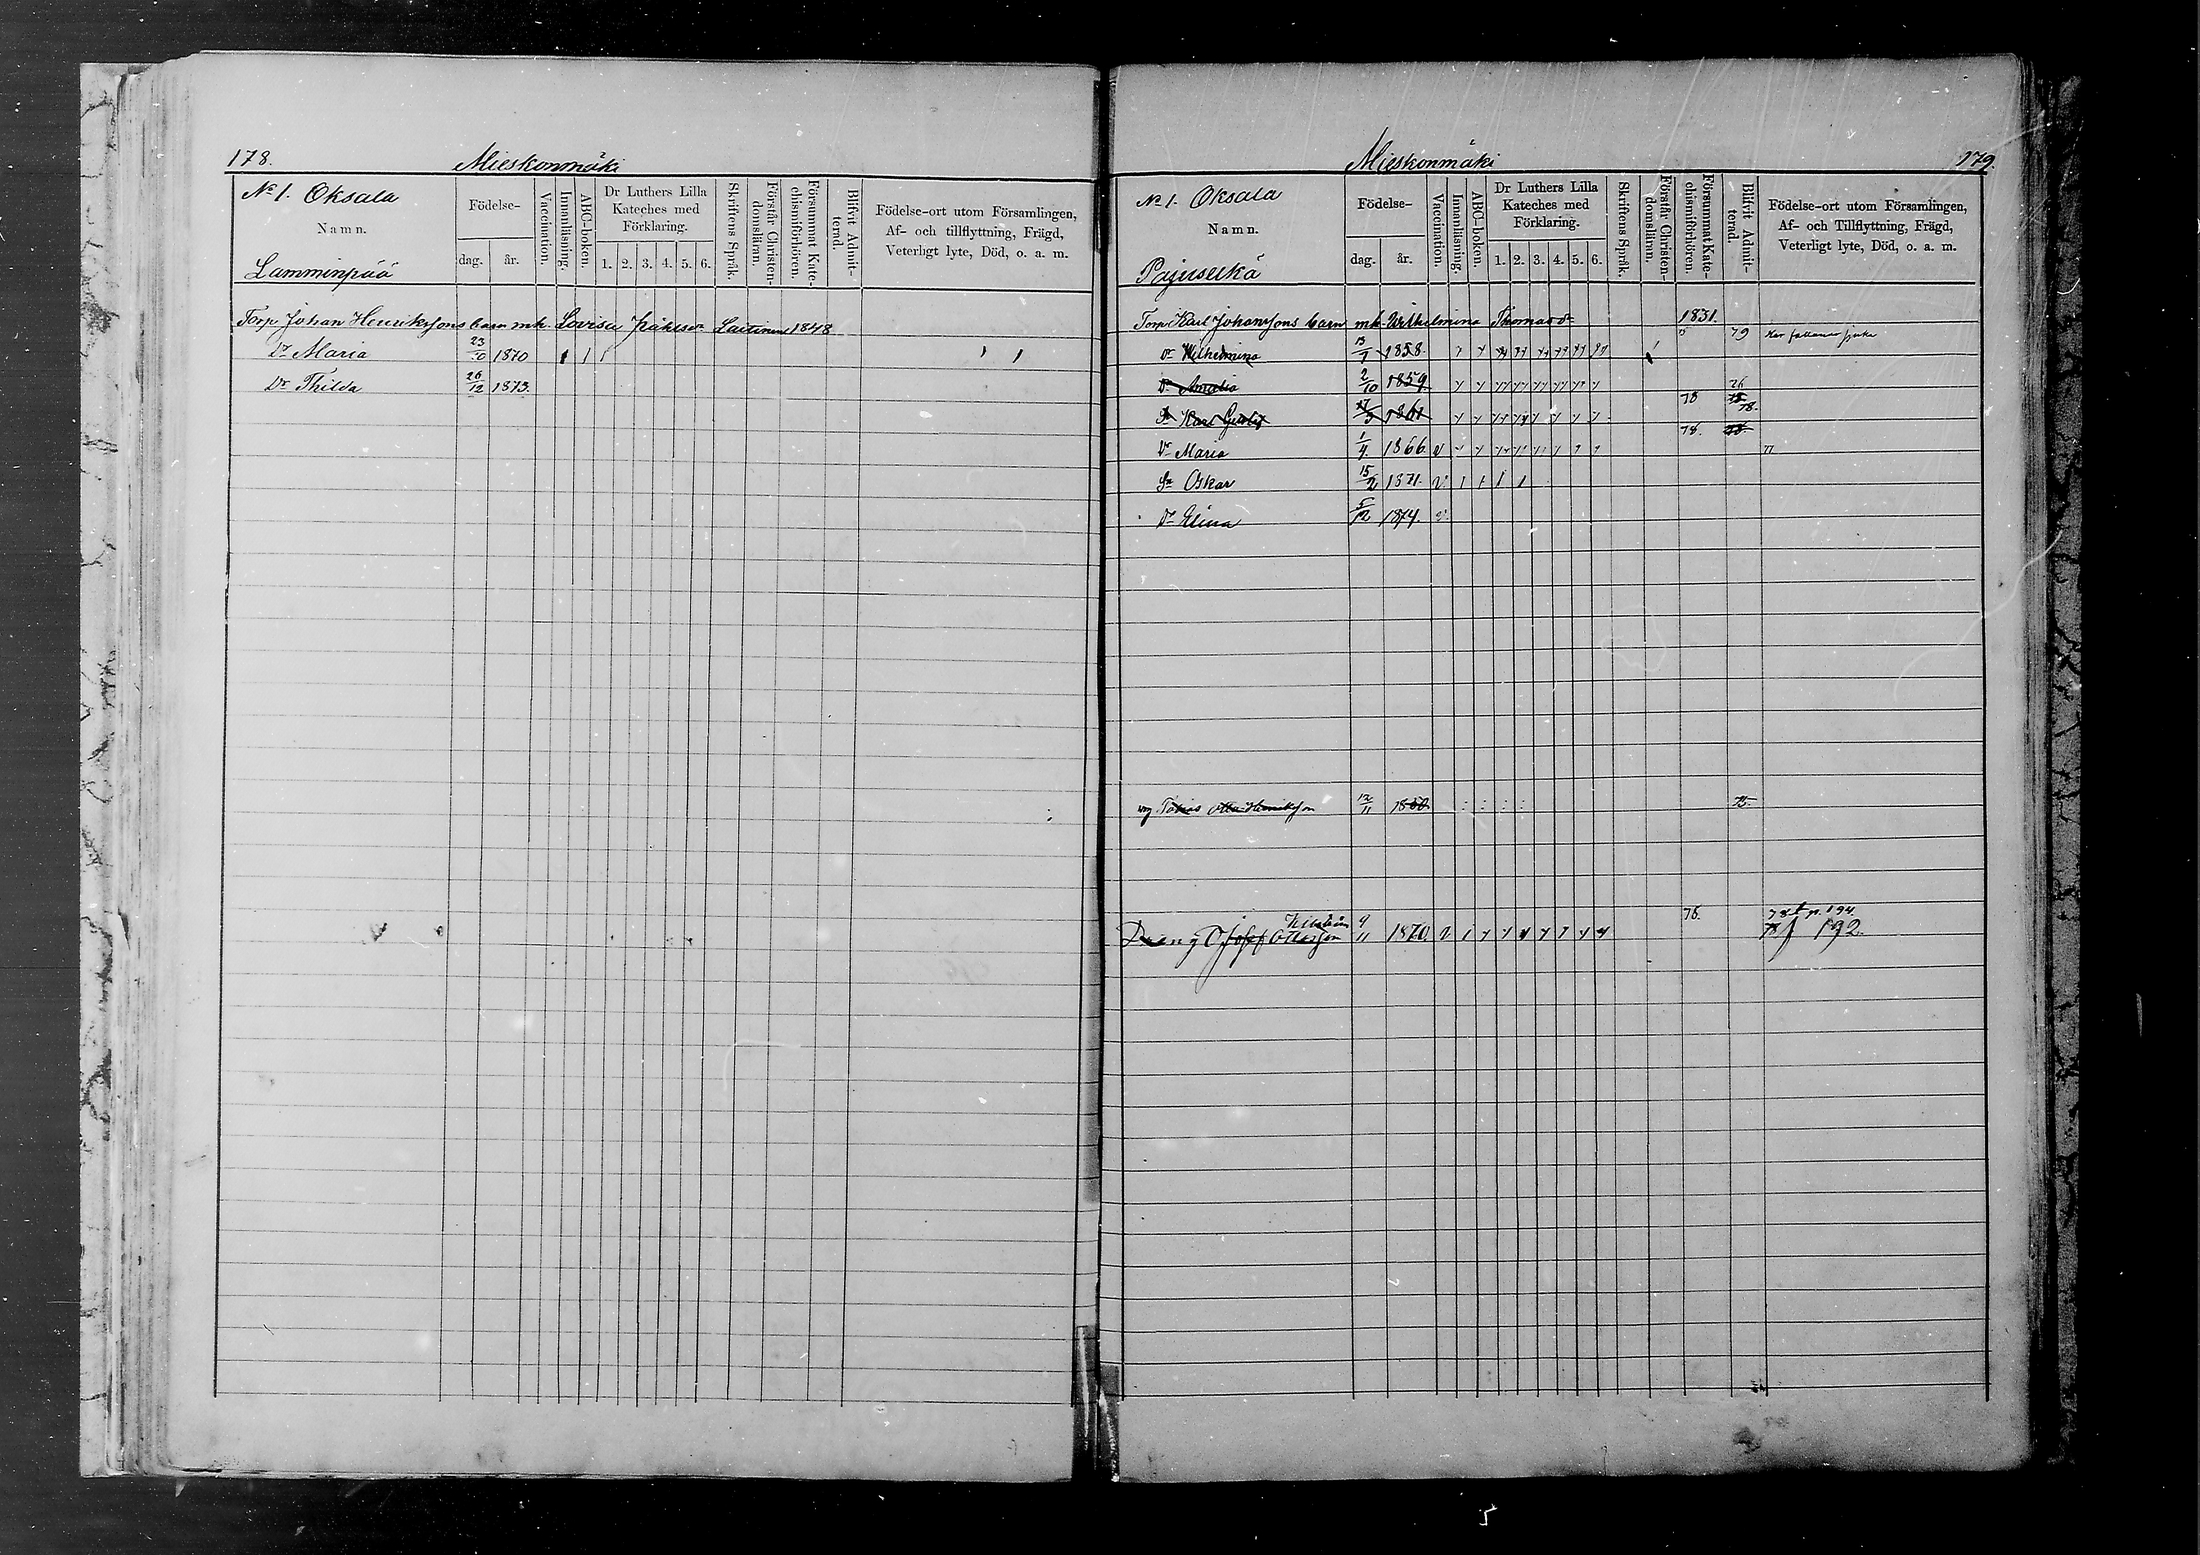 178.
Mieskonmäki
No 1. Oksala
Namn.
Lamminpää
Födelse-
dag.
år.
Vaccination.
Innanläsning.
ABC-boken.
Dr Luthers Lilla
Kateches med
Förklaring.
1. 2. 3. 4. 5. 6.
Skriftens Språk.
Förstår Christen-
domsläran.
Försummat Kate-
chismiförhören.
Blifvit Admit-
terad.
Födelse-ort utom Församlingen,
Af- och tillflyttning, Frägd,
Veterligt lyte, Död, o. a. m.
Torp Johan Henrikssons barn mh Lovisa 1848
Dr Maria 23/10 1870
Dr Thilda 26/12 1873.
Mieskonmäki
179.
No 1. Oksala
Namn.
Pajuselkä
Födelse-
dag.
år.
Vaccination.
Innanläsning.
ABC-boken.
Dr Luthers Lilla
Kateches med
Förklaring.
1. 2. 3. 4. 5. 6.
Skriftens Språk.
Förstår Christen-
domsläran.
Försummat Kate-
chismiförhören.
Blifvit Admit-
terad.
Födelse-ort utom Församlingen,
Af- och Tillflyttning, Frägd,
Veterligt lyte, Död, o. a. m.
Torp Karl Johanssons barn mh Wilhelmina Thomasdr 1831.
79
Dr Wilhelmina 1858.
Dr Amalia 2/10 1859.
26
Sn Karl Gustaf 17/3 1861 78 78.
Dr Maria 1/4 1866. 78.
Sn Oskar 15/2 1871.
Dr Elina 5/12 1874.
Tobias Henriksson 12/11 75.
Dräng Josef Ottosson 9/11 1870 78.
78 t p. 194.
78 f 192.